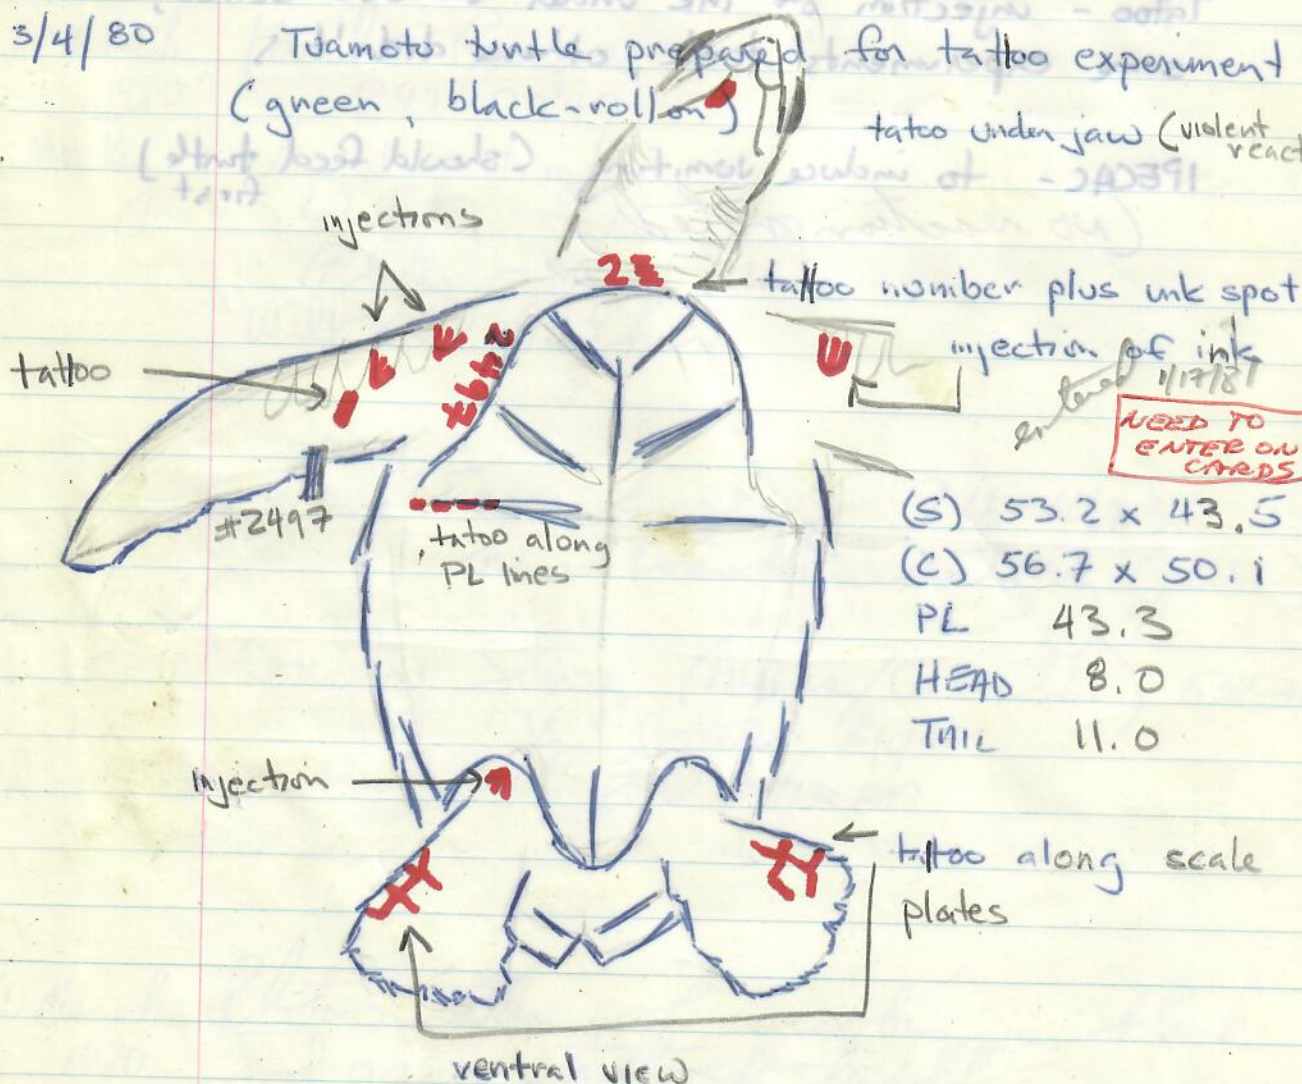 3/4/80 Tuamoto turtle prepared for tattoo experiment
(green, black-roll on)
tatoo under jaw (violent
react
injections
2
tattoo number plus ink spot
injection of ink
tattoo
entered 1/17/81
NEED TO
ENTER ON
CARDS
#2497
tatoo along
PL lines
(S) 53.2 x 43.5
(C) 56.7 x 50.1
PL 43.3
HEAD 8.0
TAIL 11.0
injection
tattoo along scale
plates
ventral view